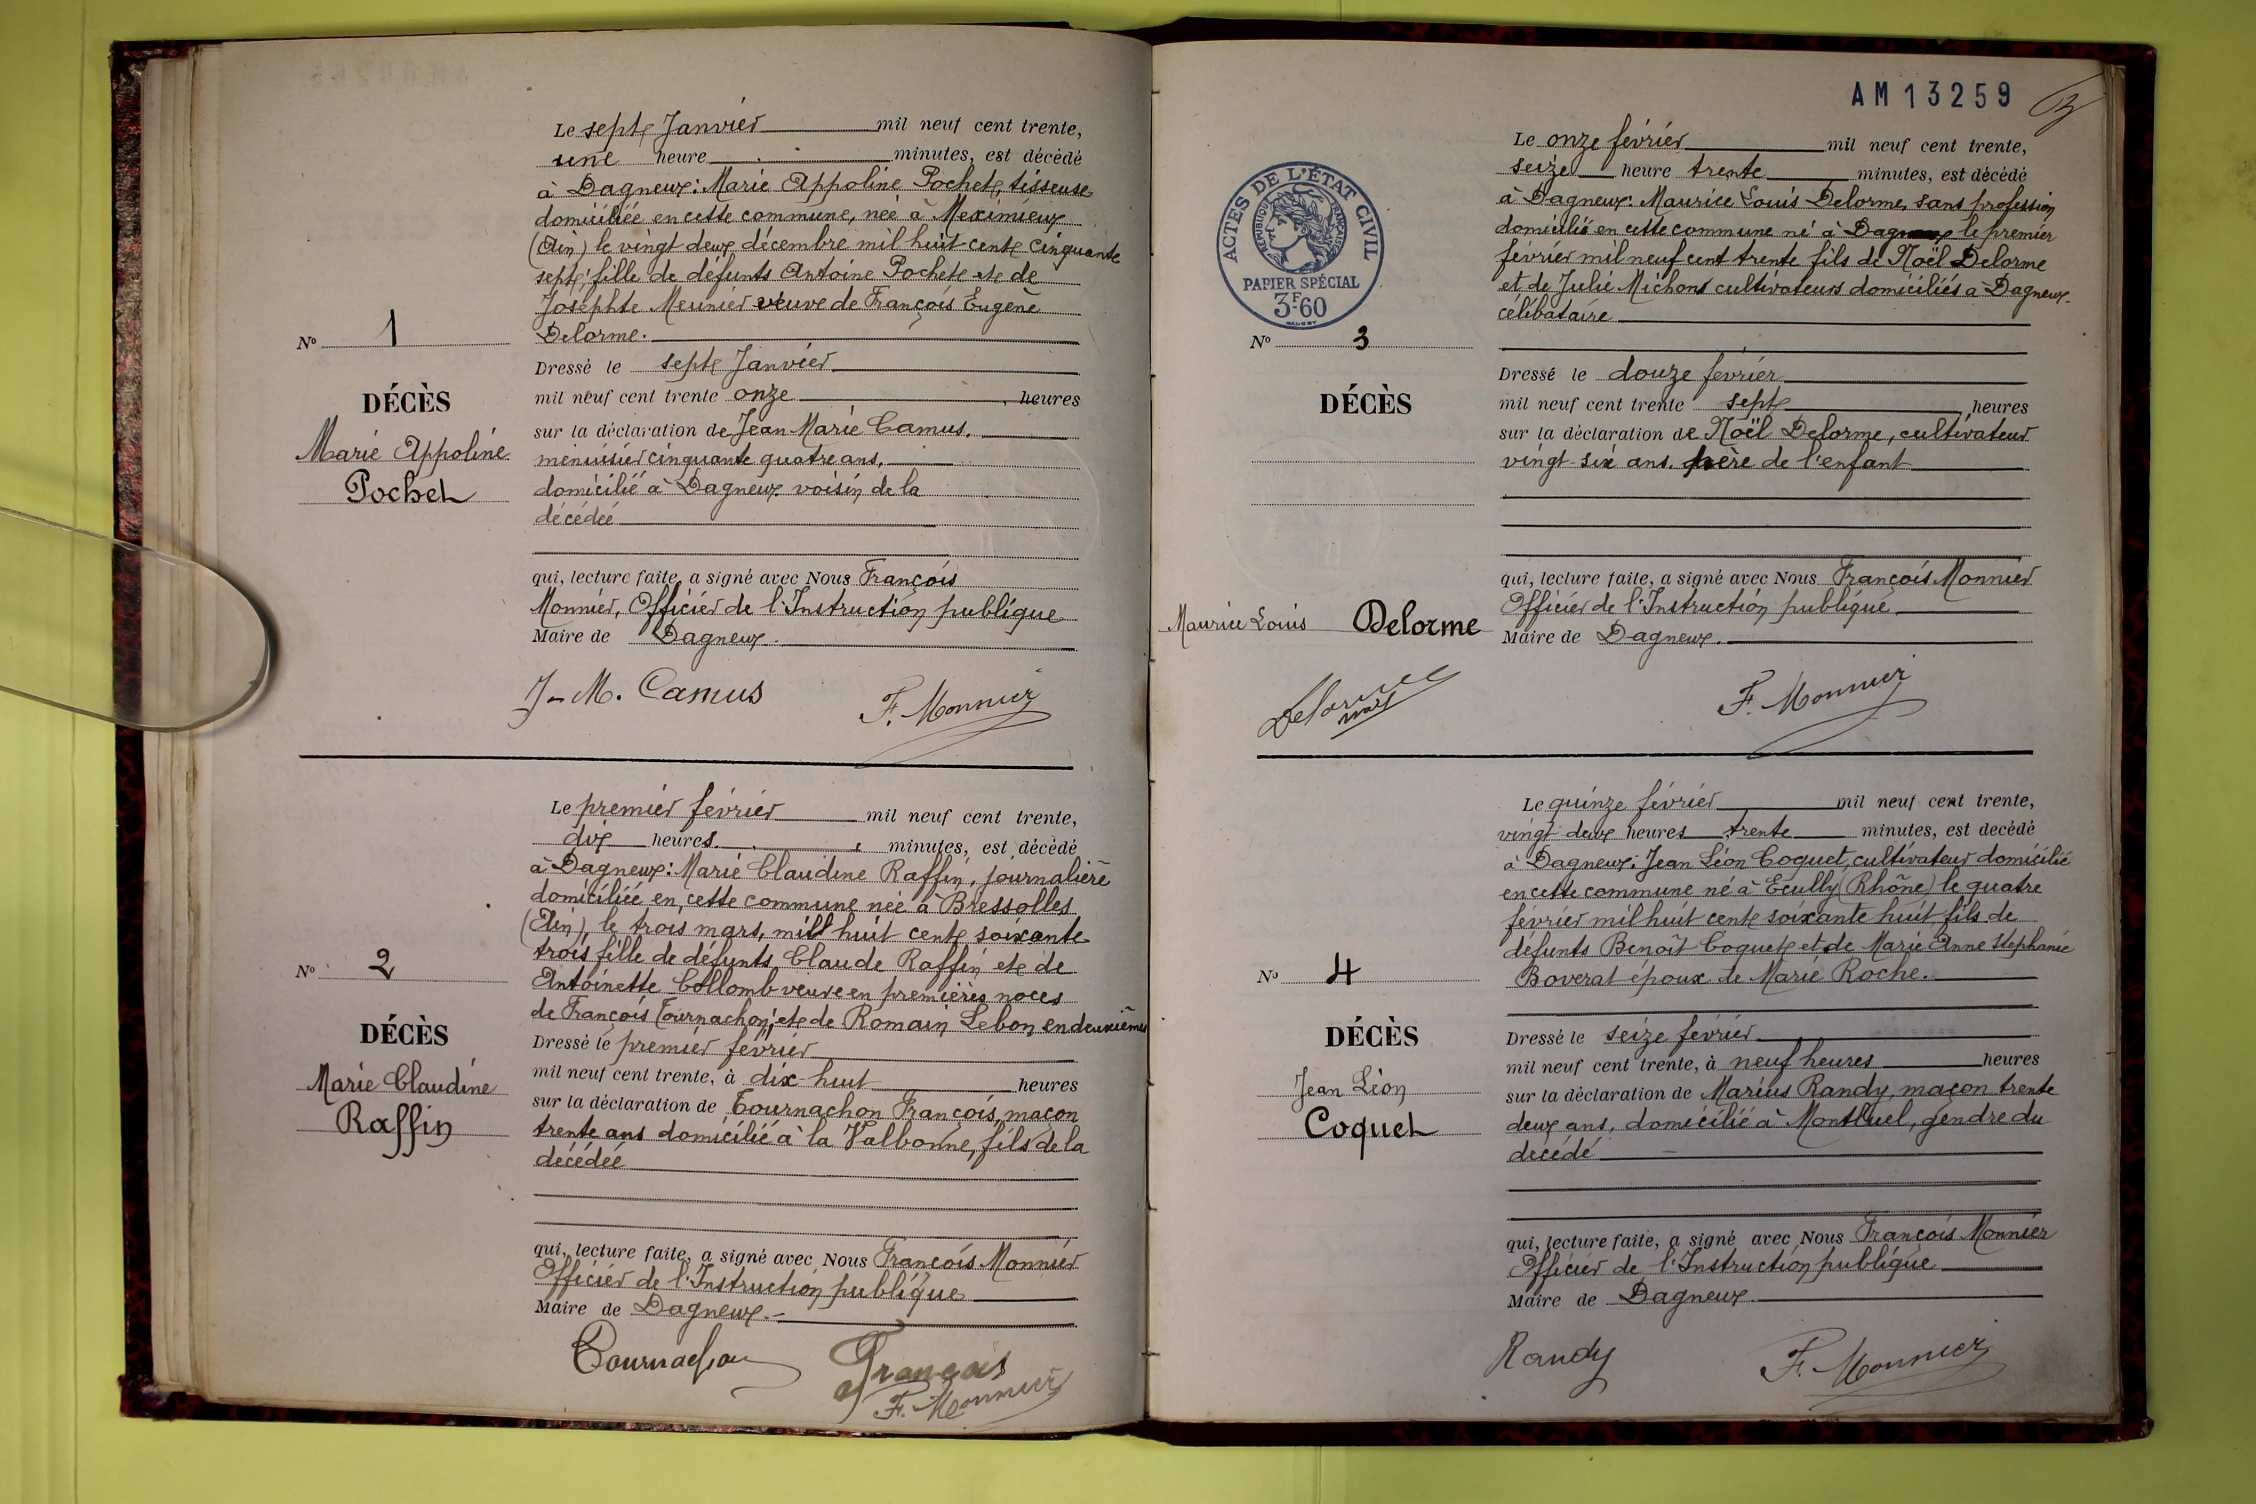 Le sept Janvier mil neuf cent trente,
une heure minutes, est décédé
à Dagneux : Marie Appoline Pochet, tisseuse
domiciliée en cette commune, née à Meximieux
(Ain) le vingt deux décembre mil huit cent cinquante
sept, fille de défunts Antoine Pochet et de
Joséphte Meunier veuve de François Eugène
Delorme.
Nº 1
DÉCÈS
Marie Appoline
Pochet
Dressé le sept Janvier
mil neuf cent trente onze heures
sur la déclaration de Jean Marie Camus,
menuisier cinquante quatre ans,
domicilié à Dagneux voisin de la
décédée
qui, lecture faite, a signé avec Nous François
Monnier, Officier de l'Instruction publique
Maire de Dagneux.
J-M. Camus F. Monnier
Le premier février mil neuf cent trente,
dix heures minutes, est décédé
à Dagneux : Marie Claudine Raffin, journalière
domiciliée en cette commune née à Bressolles
(Ain), le trois mars, mill huit cent soixante
trois fille de défunts Claude Raffin et de
Antoinette Collomb veuve en premières noces
de François Tournachon, et de Romain Lebon en deuxièmes
Nº 2
DÉCÈS
Marie Claudine
Raffin
Dressé le premier février
mil neuf cent trente, à dix-huit heures
sur la déclaration de Tournachon François, maçon
trente ans domicilié à la Valbonne, fils de la
décédée
qui, lecture faite, a signé avec Nous François Monnier
Officier de l'Instruction publique
Maire de Dagneux.-
Tournachon François
F. Monnier
AM13259
ACTES DE L'ÉTAT CIVIL
RÉPUBLIQUE FRANÇAISE
PAPIER SPÉCIAL
3F.60
Le onze février mil neuf cent trente,
seize heure trente minutes, est décédé
à Dagneux : Maurice Louis Delorme, sans profession
domicilié en cette commune né à Dagneux le premier
février mil neuf cent trente fils de Noël Delorme
et de Julie Michon cultivateurs domiciliés à Dagneux.
célibataire
Nº 3
DÉCÈS
Maurice Louis Delorme
Dressé le douze février
mil neuf cent trente sept heures
sur la déclaration de Noël Delorme, cultivateur
vingt six ans, père de l'enfant
qui, lecture faite, a signé avec Nous François Monnier
Officier de l'Instruction publique
Maire de Dagneux.
Delorme
Noël
F. Monnier
Le quinze février mil neuf cent trente,
vingt deux heures trente minutes, est decédé
à Dagneux : Jean Léon Coquet, cultivateur domicilié
en cette commune né à Ecully (Rhône) le quatre
février mil huit cent soixante huit fils de
défunts Benoît Coquet et de Marie Anne Stephanie
Boverat époux de Marie Roche.
Nº 4
DÉCÈS
Jean Léon
Coquet
Dressé le seize février
mil neuf cent trente, à neuf heures heures
sur la déclaration de Marius Randy, maçon trente
deux ans, domicilié à Montluel, gendre du
decédé
qui, lecture faite, a signé avec Nous François Monnier
Officier de l'Instruction publique
Maire de Dagneux.
Randy F. Monnier